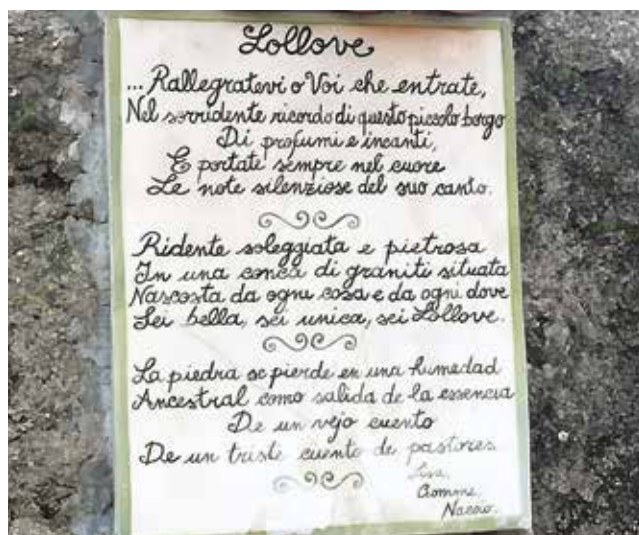 Lollove
... Rallegratevi o Voi che entrate,
Nel sorridente ricordo di questo piccolo borgo
Di profumi e incanti,
E portate sempre nel cuore
Le note silenziose del suo canto.
Ridente soleggiata e pietrosa
In una conca di graniti situata
Nascosta da ogni cosa e da ogni dove
Sei bella, sei unica, sei Lollove.
La piedra se pierde en una humedad
Ancestral como salida de la essencia
De un vejo cuento
De un triste cuento de pastores